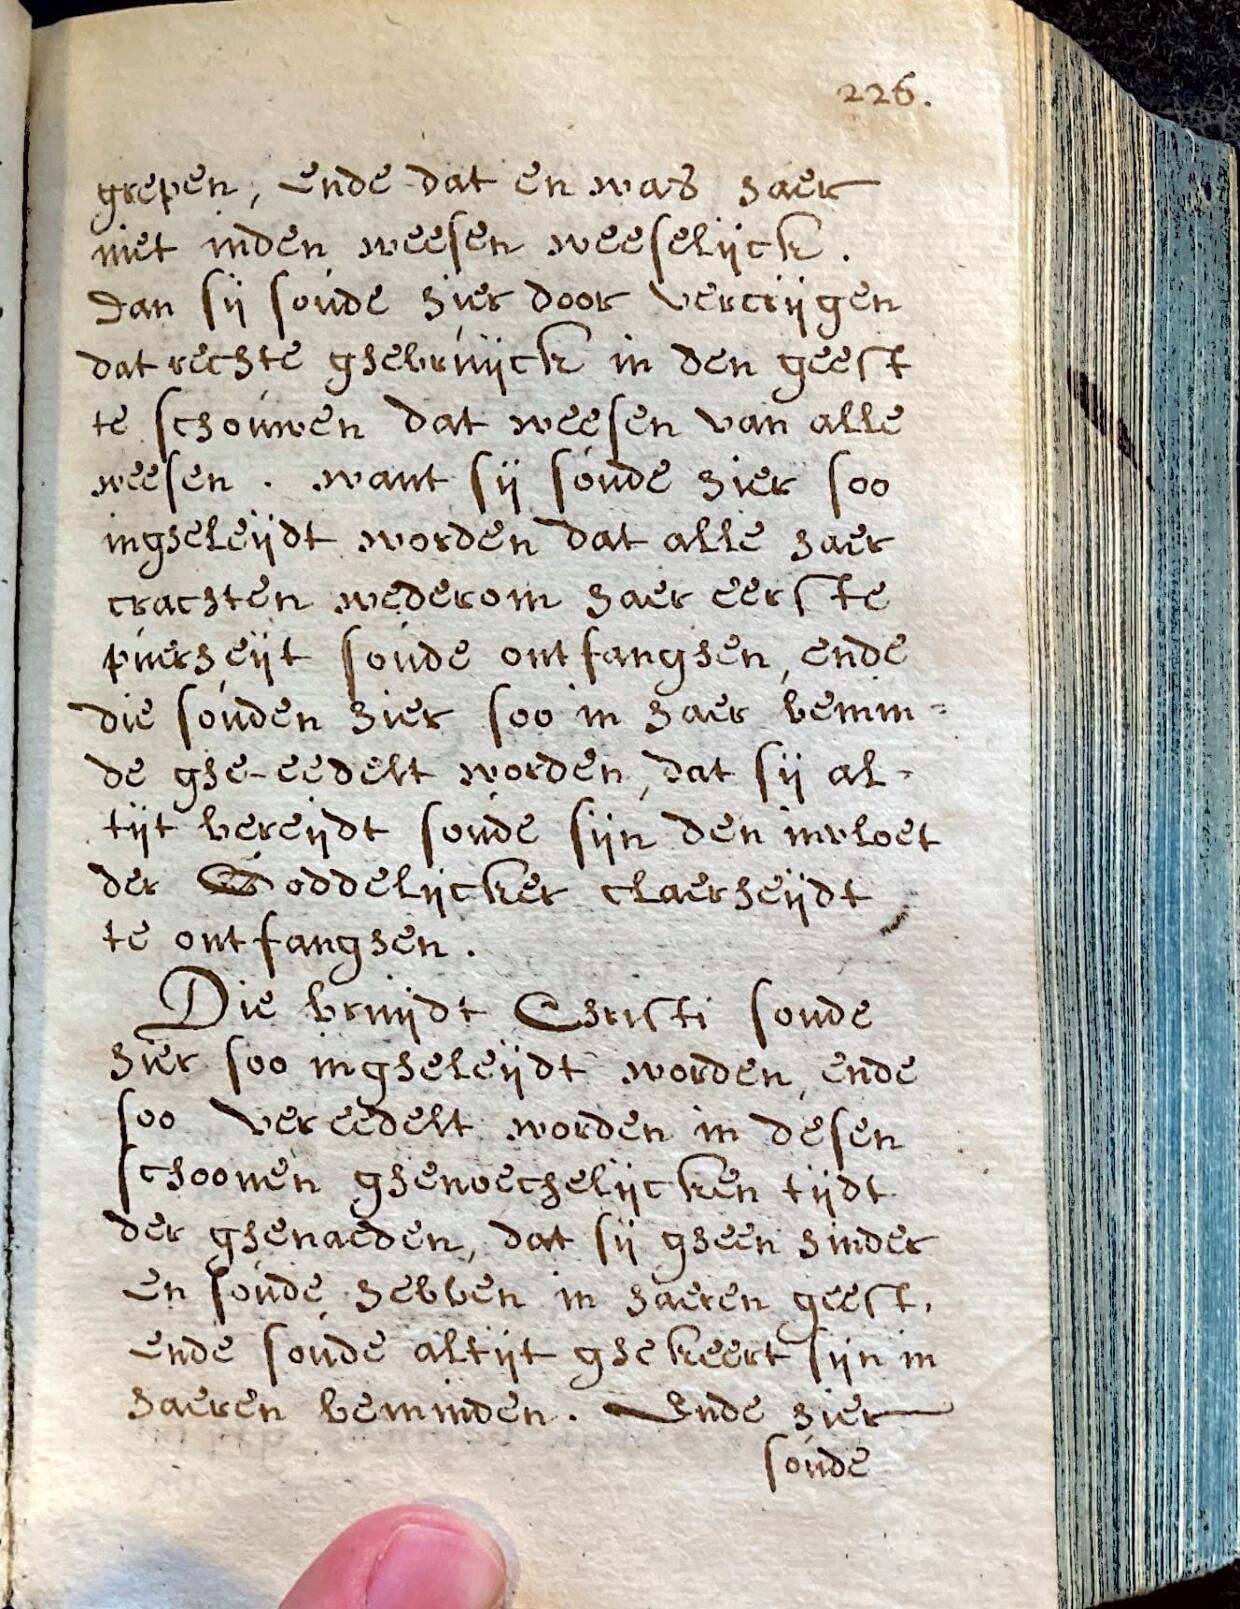 226.
grepen, ende dat en was haer
niet inden weesen weeselijck.
Dan sij soude hier door vercrijgen
dat rechte ghebruijck in den geest
te schouwen dat weesen van alle
weesen. want sij soude hier soo
ingheleijdt worden dat alle haer
crachten wederom haer eerste
puerheijt soude ontfanghen, ende
die souden hier soo in haer bemin=
de ghe-eedelt worden, dat sij al-
tijt bereijdt soude sijn den invloet
der Goddelijcker claerheijdt
te ontfanghen.
Die bruijdt Christi soude
hier soo ingheleijdt worden, ende
soo vereedelt worden in desen
schoonen ghenoechelijcken tijdt
der ghenaeden, dat sij gheen hinder
en soude hebben in haeren geest,
ende soude altijt ghekeert sijn in
haeren beminden. Ende hier
soude